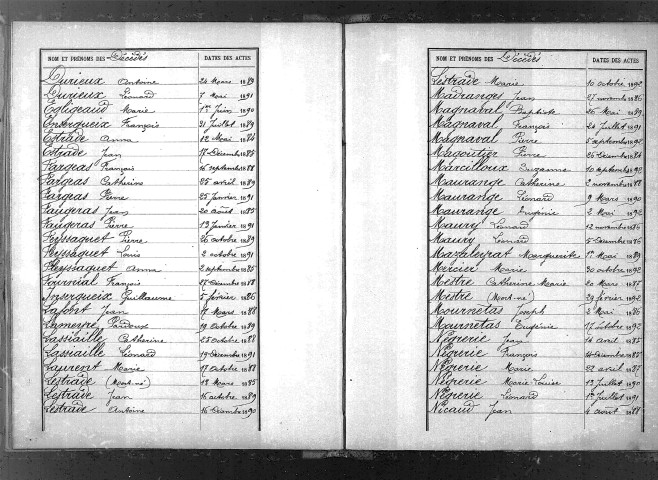 NOM ET PRÉNOMS DES Décédés DATES DES ACTES
Durieux Antoine 24 Mars 1889
Durieux Léonard 7 Mai 1891
Eglizeaud Marie 1er Juin 1890
Enserqueix François 31 Juillet 1889
Estrade Anna 12 Mai 1884
Estrade Jean 17 Décembre 1885
Fargeas François 16 septembre 1888
Fargeas Catherine 25 avril 1889
Fargeas Pierre 25 janvier 1891
Faugeras Jean 20 août 1885
Faugeras Pierre 13 Janvier 1891
Feyssaguet Pierre 26 octobre 1889
Feyssaguet Louis 2 octobre 1891
Fleyssaguet Anna 2 septembre 1885
Fournial François 27 Décembre 1888
Inserqueix Guillaume 5 février 1886
Lafont Jean 17 Mars 1888
Lameyre Pardoux 19 octobre 1889
Lassiaille Catherine 25 octobre 1888
Lassiaille Léonard 19 Décembre 1891
Laurent Marie 17 octobre 1888
Lestrade (Mort-né) 18 Mars 1885
Lestrade Jean 16 octobre 1889
Lestrade Antoine 16 Décembre 1890
NOM ET PRÉNOMS DES Décédés DATES DES ACTES
Lestrade Marie 10 octobre 1892
Madranges Jean 27 novembre 1886
Magnaval Baptiste 26 Mai 1889
Magnaval François 24 Juillet 1891
Magnaval Pierre 5 septembre 1892
Magoutier Pierre 26 Décembre 1884
Marcilloux Suzanne 10 septembre 1890
Maurange Catherine 2 novembre 1888
Maurange Léonard 9 Mars 1890
Maurange Eugénie 2 Mai 1892
Maury Léonard 12 novembre 1884
Maury Léonard 5 Décembre 1886
Mazaleyrat Marguerite 1er Mai 1889
Mercier Marie 30 octobre 1892
Mestre Catherine Marie 20 Mars 1887
Mestre (Mort-né) 29 février 1892
Mournetas Joseph 2 Mai 1886
Mournetas Eugénie 17 octobre 1892
Négrerie Jean 14 avril 1885
Négrerie François Décembre 1885
Négrerie Marie 22 avril 1887
Négrerie Marie Louise 13 Juillet 1890
Négrerie Léonard 1er Juillet 1891
Nicaud Jean 4 août 1884